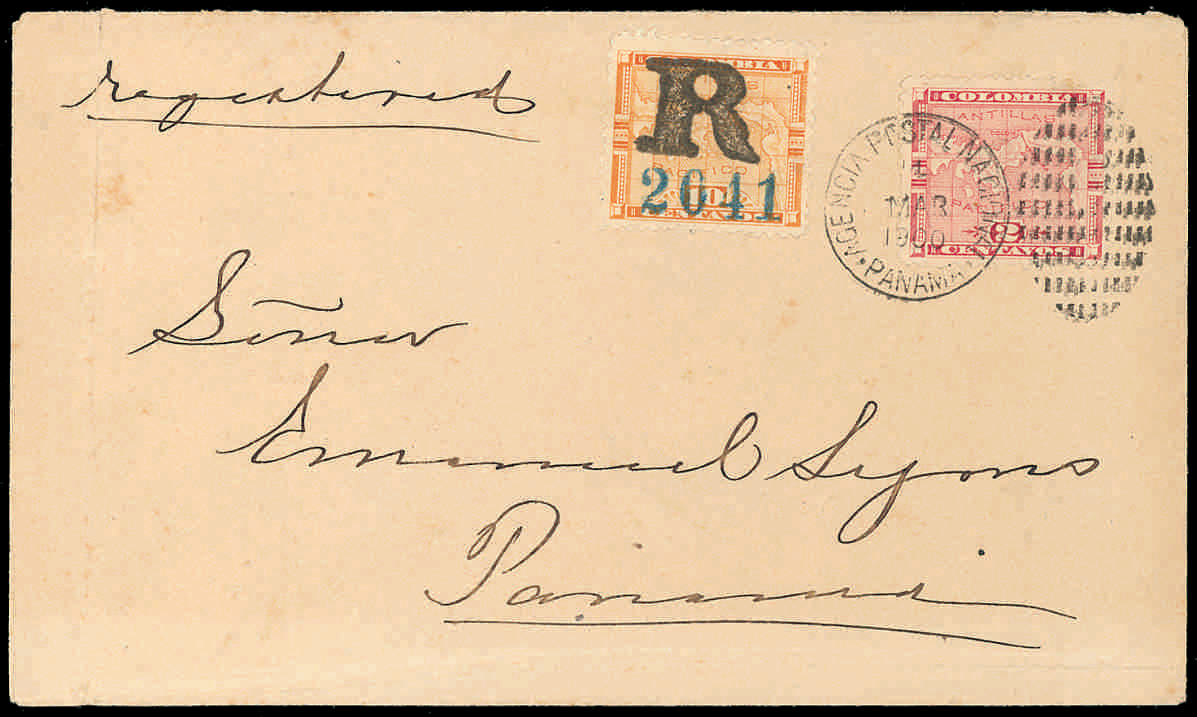 registered
COLOMBIA
R
2041
10
CENTAVOS
COLOMBIA
ANTILLAS
PA
CENTAVOS
AGENCIA POSTAL NACIONAL
MAR
1900
PANAMA
Señor
Emanuel Lyons
Panama